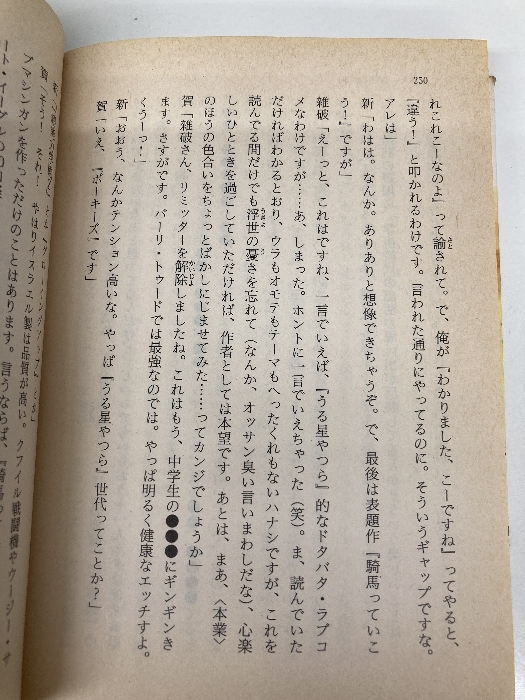 250
れこれこーなのよ』って諭されて。で、俺が『わかりました、こーですね』ってやると、
『違う!』と叩かれるわけです。言われた通りにやってるのに。そういうギャップですな。
アレは」
新「わはは。なんか。ありありと想像できちゃうぞ。で、最後は表題作『騎馬っていこ
う!』ですが」
雑破「えーっと、これはですね、一言でいえば、『うる星やつら』的なドタバタ・ラブコ
メなわけですが……あ、しまった。ホントに一言でいえちゃった（笑）。ま、読んでいた
だければわかるとおり、ウラもオモテもテーマもへったくれもないハナシですが、これを
読んでる間だけでも浮世の憂さを忘れて（なんか、オッサン臭い言いまわしだな）、心楽
しいひとときを過ごしていただければ、作者としては本望です。あとは、まあ、〈本業〉
のほうの色合いをちょっとばかしにじませてみた……ってカンジでしょうか」
賀「雑破さん、リミッターを解除しましたね。これはもう、中学生の●●●にギンギンき
ます。さすがです。バーリ・トゥードでは最強なのでは。やっぱ明るく健康なエッチすよ。
くうーっ!」
新「おおう、なんかテンション高いな。やっぱ『うる星やつら』世代ってことか?」
賀「いえ、『ポーキーズ』です」
賀「そう! それ!
やはりイスラエル製は品質が高い。クフィル戦闘機やウージー・サ
ブマシンガンを作っただけのことはあります。言うならば、『騎馬っ